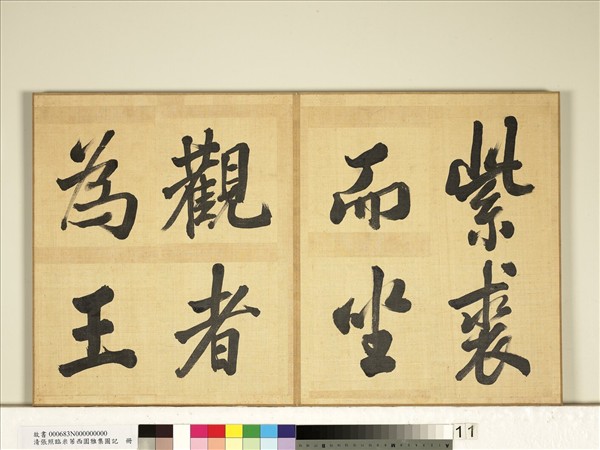 紫裘
而坐
觀者
為王
故書 000683N000000000
清張照臨米芾西園雅集圖記 冊
11